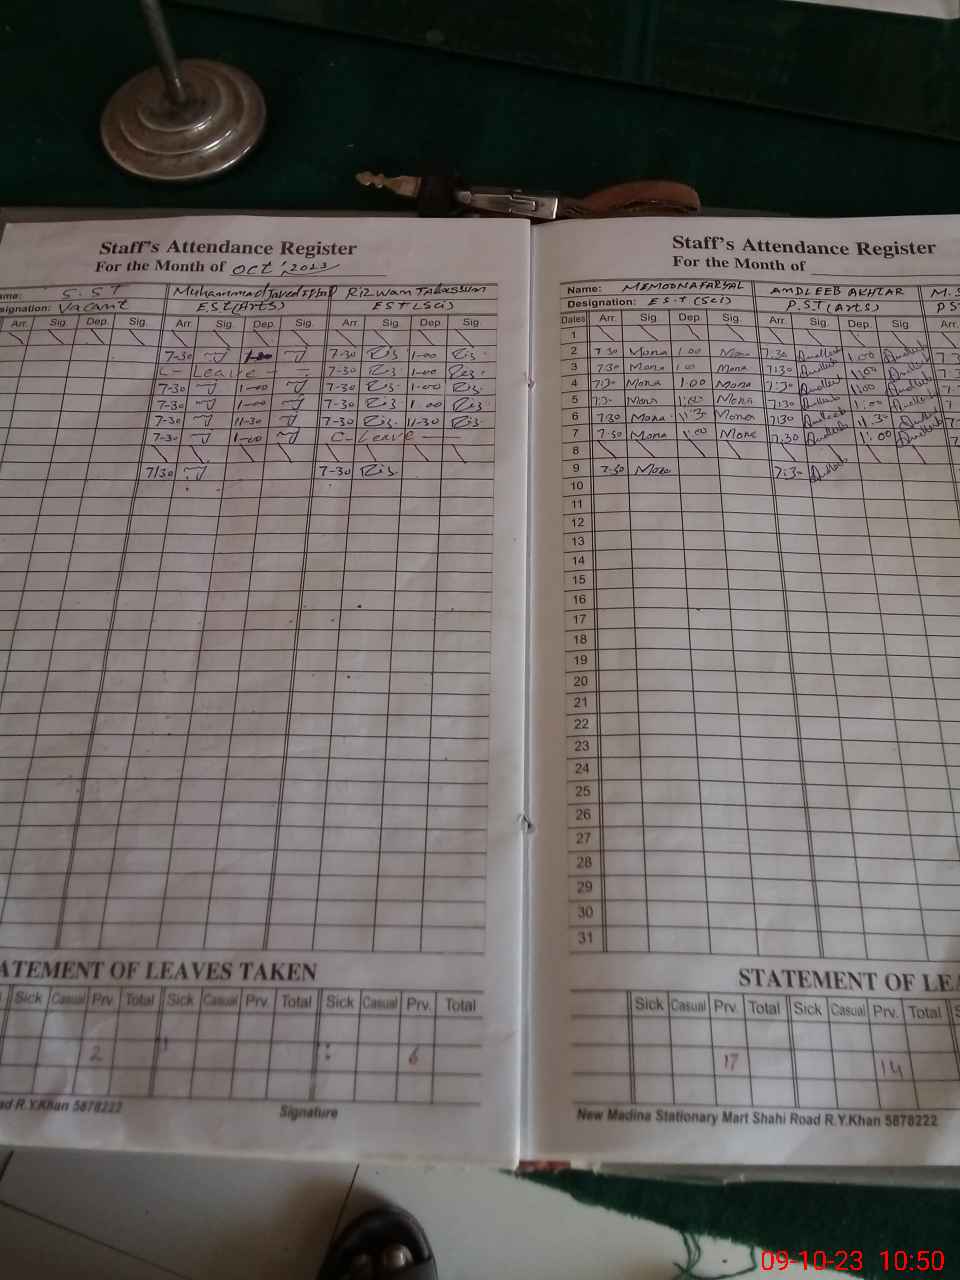 Staff's Attendance Register
For the Month of Oct' 2023
ame: S.ST Muhammad Javed Iqbal RIZWAN TABASSUM
signation: Vacant E.S.T(Arts) EST(Sci)
Arr. Sig. Dep. Sig. Arr. Sig. Dep. Sig. Arr. Sig. Dep. Sig.
7-30 1-00 7-30 Riz 1-00 Riz.
C- Leave - 7-30 Riz 1-00 Riz.
7-30 1-00 7-30 Riz 1-00 Riz.
7-30 1-00 7-30 Riz. 1.00 Riz.
7-30 11-30 7-30 Riz. 11-30 Riz.
7-30 1-00 C-Leave
7/30 7-30 Riz.
ATEMENT OF LEAVES TAKEN
Sick Casual Prv. Total Sick Casual Prv. Total Sick Casual Prv. Total
2 6
ad R.Y.Khan 5878222 Signature
Staff's Attendance Register
For the Month of
Name: MEMOONA FAISAL AMDLEEB AKHTAR M.S
Designation: E.S.T (Sci) P.S.T (Arts) PS
Dates Arr. Sig. Dep. Sig. Arr. Sig. Dep. Sig. Arr.
1
2 7.30 Mona 1.00 Mona 7.30 Amdleeb 1.00 Amdleeb 7.3
3 7.30 Mona 1.00 Mona 7:30 Amdleeb 1:00 Amdleeb 7.3
4 7:30 Mona 1.00 Mona 7:30 Amdleeb 1:00 Amdleeb 7.
5 7:30 Mona 1:00 Mona 7:30 Amdleeb 1:00 Amdleeb 7
6 7.30 Mona 11:30 Mona 7:30 Amdleeb 11:30 Amdleeb 7
7 7.30 Mona 1:00 Mona 7:30 Amdleeb 1:00 Amdleeb 7
8
9 7.30 Mona 7:30 Amdleeb
10
11
12
13
14
15
16
17
18
19
20
21
22
23
24
25
26
27
28
29
30
31
STATEMENT OF LEA
Sick Casual Prv. Total Sick Casual Prv. Total S
17 14
New Madina Stationary Mart Shahi Road R.Y.Khan 5878222
09-10-23 10:50